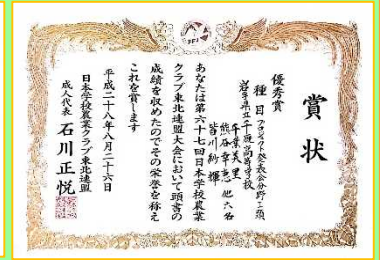 賞状
優秀賞
種目 プロジェクト発表会分野Ⅰ類
岩手県立千厩高等学校
千葉美里
熊谷幸恵 他六名
皆川駒輝
あなたは第六十七回日本学校農業
クラブ東北連盟大会において頭書の
成績を収めたのでその栄誉を称え
これを賞します
平成二十八年八月二十六日
日本学校農業クラブ東北連盟
成人代表 石川正悦